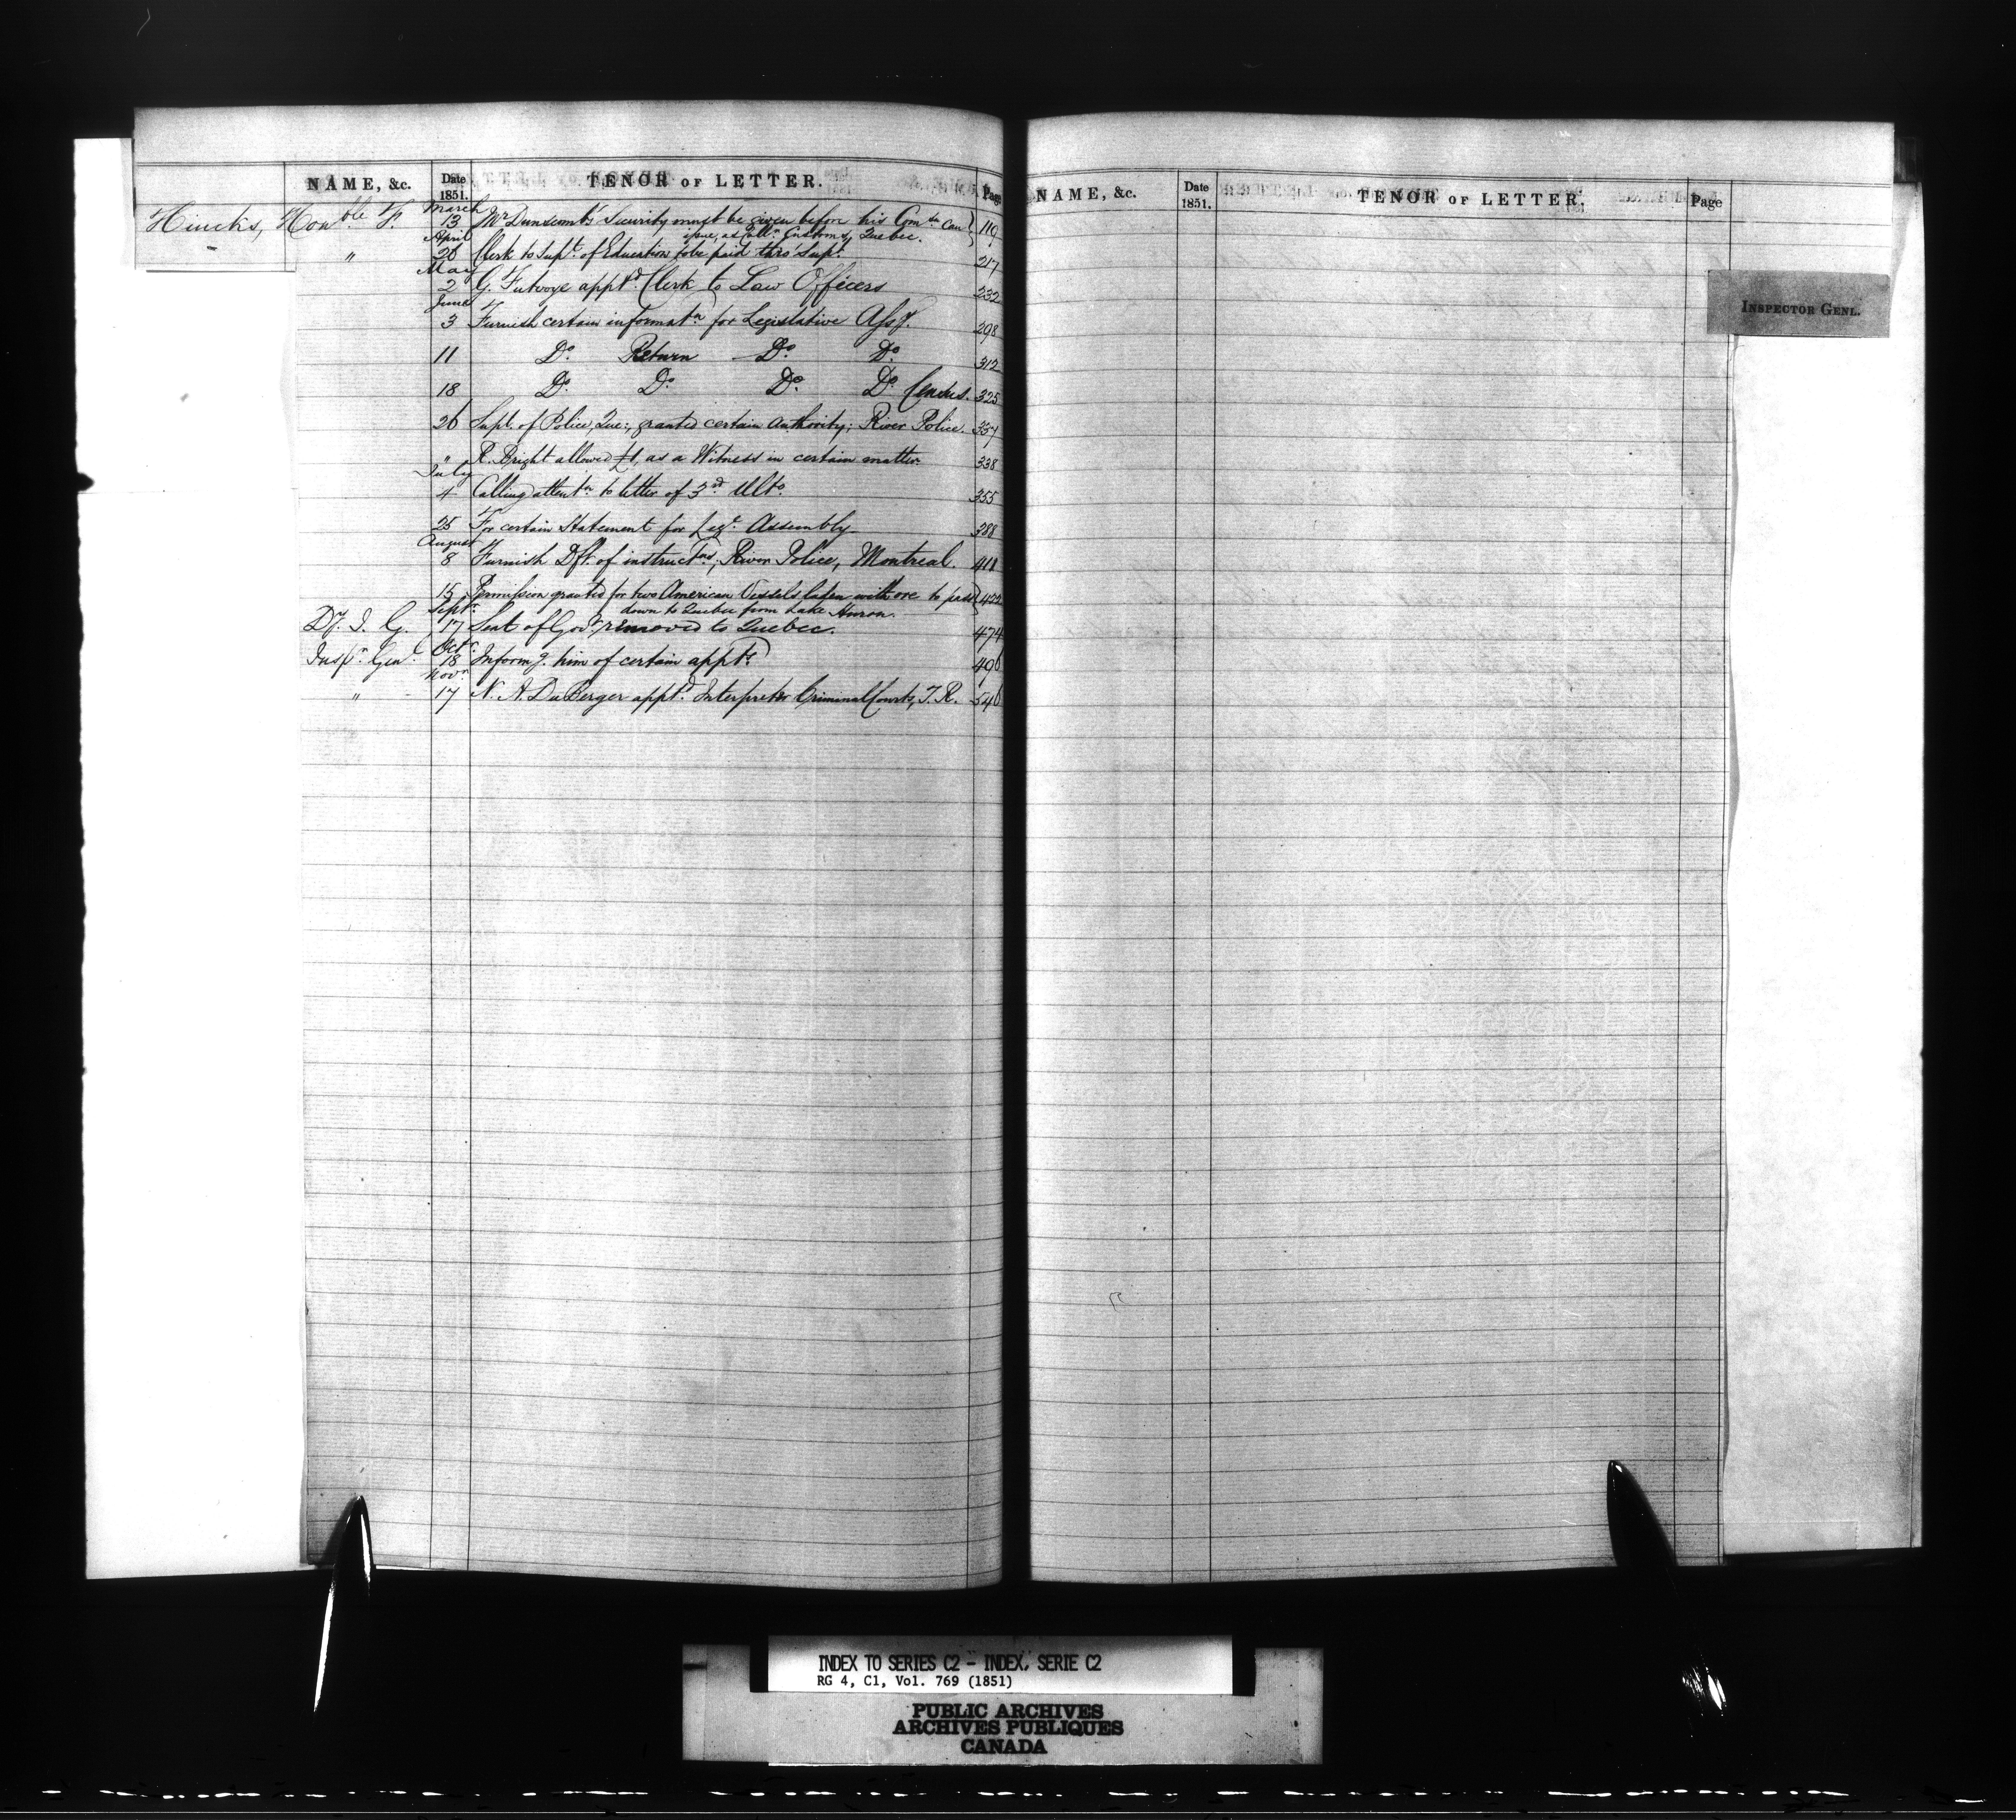 NAME, &c. Date 1851. TENOR OF LETTER. Page
Hincks, Honble F. March 13 Mr Dunscomb's Security must be given before his Comsn can 119
issue, as Collr Customs, Quebec.
" April 26 Clerk to Supt. of Education to be paid thro' Supt. 217
May 2 G. Futvoye apptd. Clerk to Law Officers 232
June 3 Furnish certain informatn for Legislative Assy. 298
11 Do. Return Do. Do. 312
18 Do. Do. Do. Do. Census. 325
26 Supt. of Police, Que:, granted certain Authority; River Police. 337
" R. Bright allowed £1, as a Witness in certain matter. 338
July 4 Calling attentn to letter of 3rd Ulto. 355
25 For certain Statement for Legve. Assembly 388
August 8 Furnish Dft. of instructions, River Police, Montreal. 411
15 Permission granted for two American Vessels laden with ore to pass 422
down to Quebec from Lake Huron.
Dy. I. G. Septr. 17 Seat of Govt removed to Quebec. 474
Inspr. Genl. Octr. 18 Informg. him of certain appts. 490
" Novr 17 N. A. DuBerger apptd. Interpreter Criminal Courts, T. R. 540
NAME, &c. Date 1851. TENOR OF LETTER. Page
INSPECTOR GENL.
INDEX TO SERIES C2 - INDEX, SERIE C2
RG 4, C1, Vol. 769 (1851)
PUBLIC ARCHIVES
ARCHIVES PUBLIQUES
CANADA